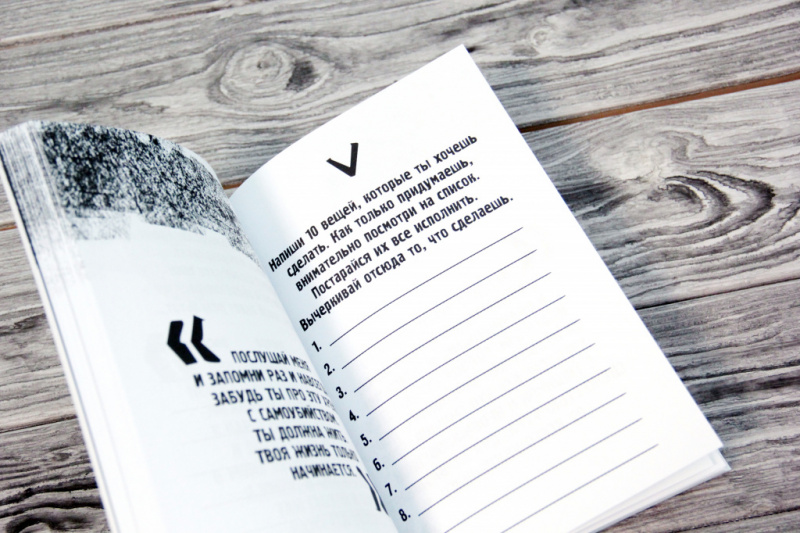 «
ПОСЛУШАЙ МЕНЯ
И ЗАПОМНИ РАЗ И
ЗАБУДЬ ТЫ ПРО ЭТУ
С САМОУБИЙСТВОМ
ТЫ ДОЛЖНА ЖИТЬ
ТВОЯ ЖИЗНЬ ТОЛЬКО
НАЧИНАЕТСЯ
V
Напиши 10 вещей, которые ты хочешь
сделать. Как только придумаешь,
внимательно посмотри на список.
Постарайся их все исполнить.
Вычеркивай отсюда то, что сделаешь.
1.
2.
3.
4.
5.
6.
7.
8.